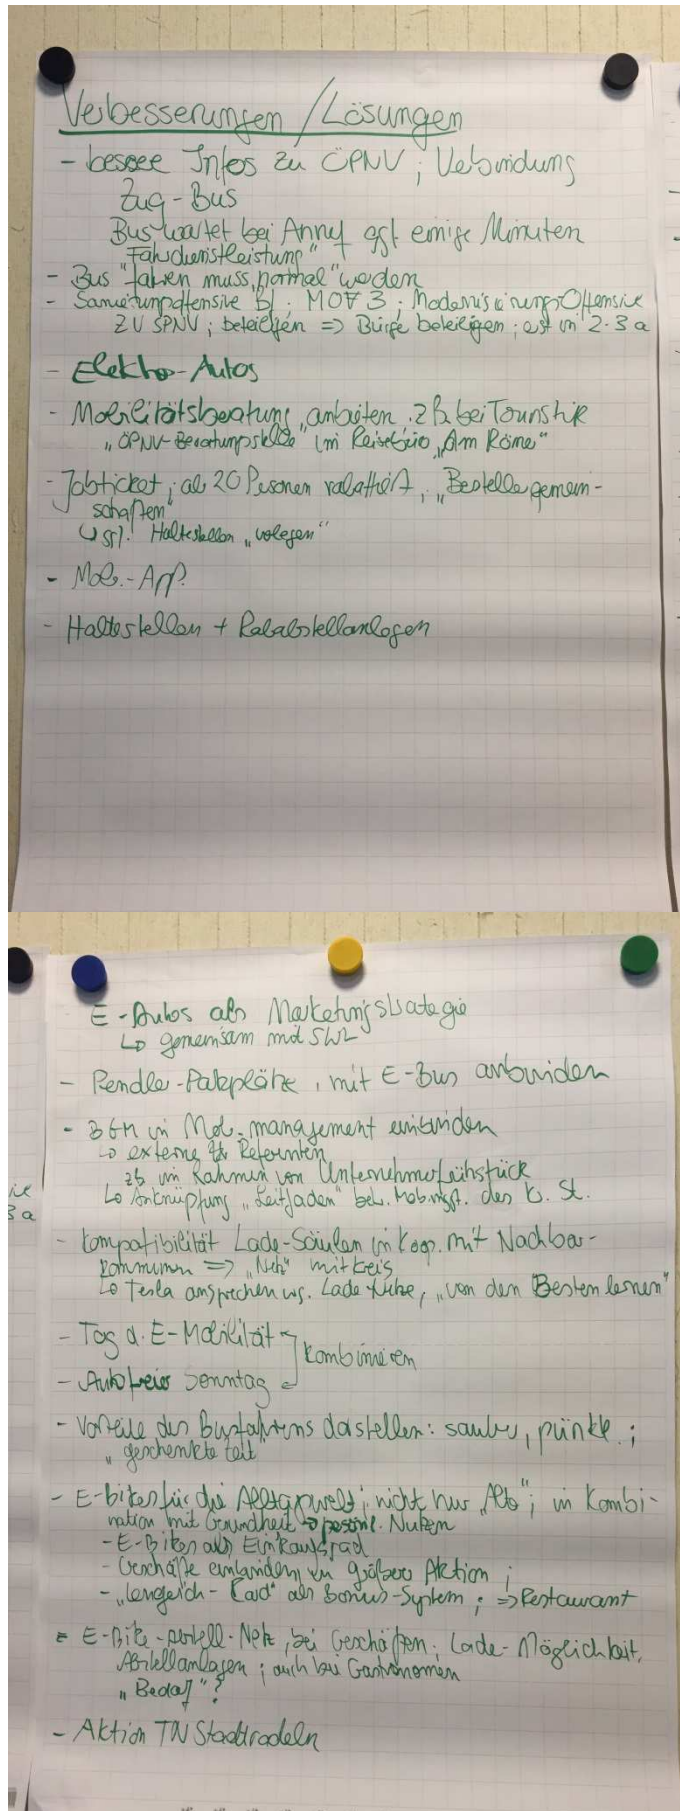 Verbesserungen / Lösungen
- bessere Infos zu ÖPNV ; Verbindung
Zug - Bus
Bus wartet bei Ankunft ggf einige Minuten
"Fahrdienstleistung"
- Bus "fahren muss „normal" werden
- Sanierungsoffensive Bf. MOF 3 ; Modernisierungs-Offensive
ZV SPNV ; beteiligen => Bürger beteiligen ; erst in 2-3 a
- Elektro-Autos
- Mobilitätsberatung „anbieten . zB. bei Touristik
„ÖPNV-Beratungsstelle" im Reisebüro „Am Römer"
- Jobticket ; ab 20 Personen rabattiert, „Bestellergemein-
schaften"
↳ ggf. Haltestellen „verlegen"
- Mob.-App.
- Haltestellen + Radabstellanlagen
E-Autos als Marketingstrategie
↳ gemeinsam mit SWL
- Pendler-Parkplätze, mit E-Bus anbinden
- BGM in Mob.management einbinden
↳ externe Referenten
zB im Rahmen von Unternehmerfrühstück
↳ Anknüpfung „Leitfaden" betr. Mob.mgt. des K. St.
- Kompatibilität Lade-Säulen in Koop. mit Nachbar-
kommunen => „Netz" mit Kreis
↳ Tesla ansprechen wg. Lade-Netze, „von den Besten lernen"
- Tag d. E-Mobilität
kombinieren
- Autofreier Sonntag
- Vorteile des Busfahrens darstellen: sauber, pünktl. ;
„geschenkte Zeit"
- E-bikes für die Alltagswelt ; nicht nur „Alte" ; in Kombi-
nation mit Gesundheit → persönl. Nutzen
- E-Bikes als Einkaufsrad
- Geschäfte einbinden zu größerer Aktion ;
- „Lengerich-Card" als Bonus-System ; => Restaurant
- E-Bike-Netz, bei Geschäften ; Lade-Möglichkeit,
Abstellanlagen ; auch bei Gastronomen
„Bedarf"?
- Aktion TN Stadtradeln